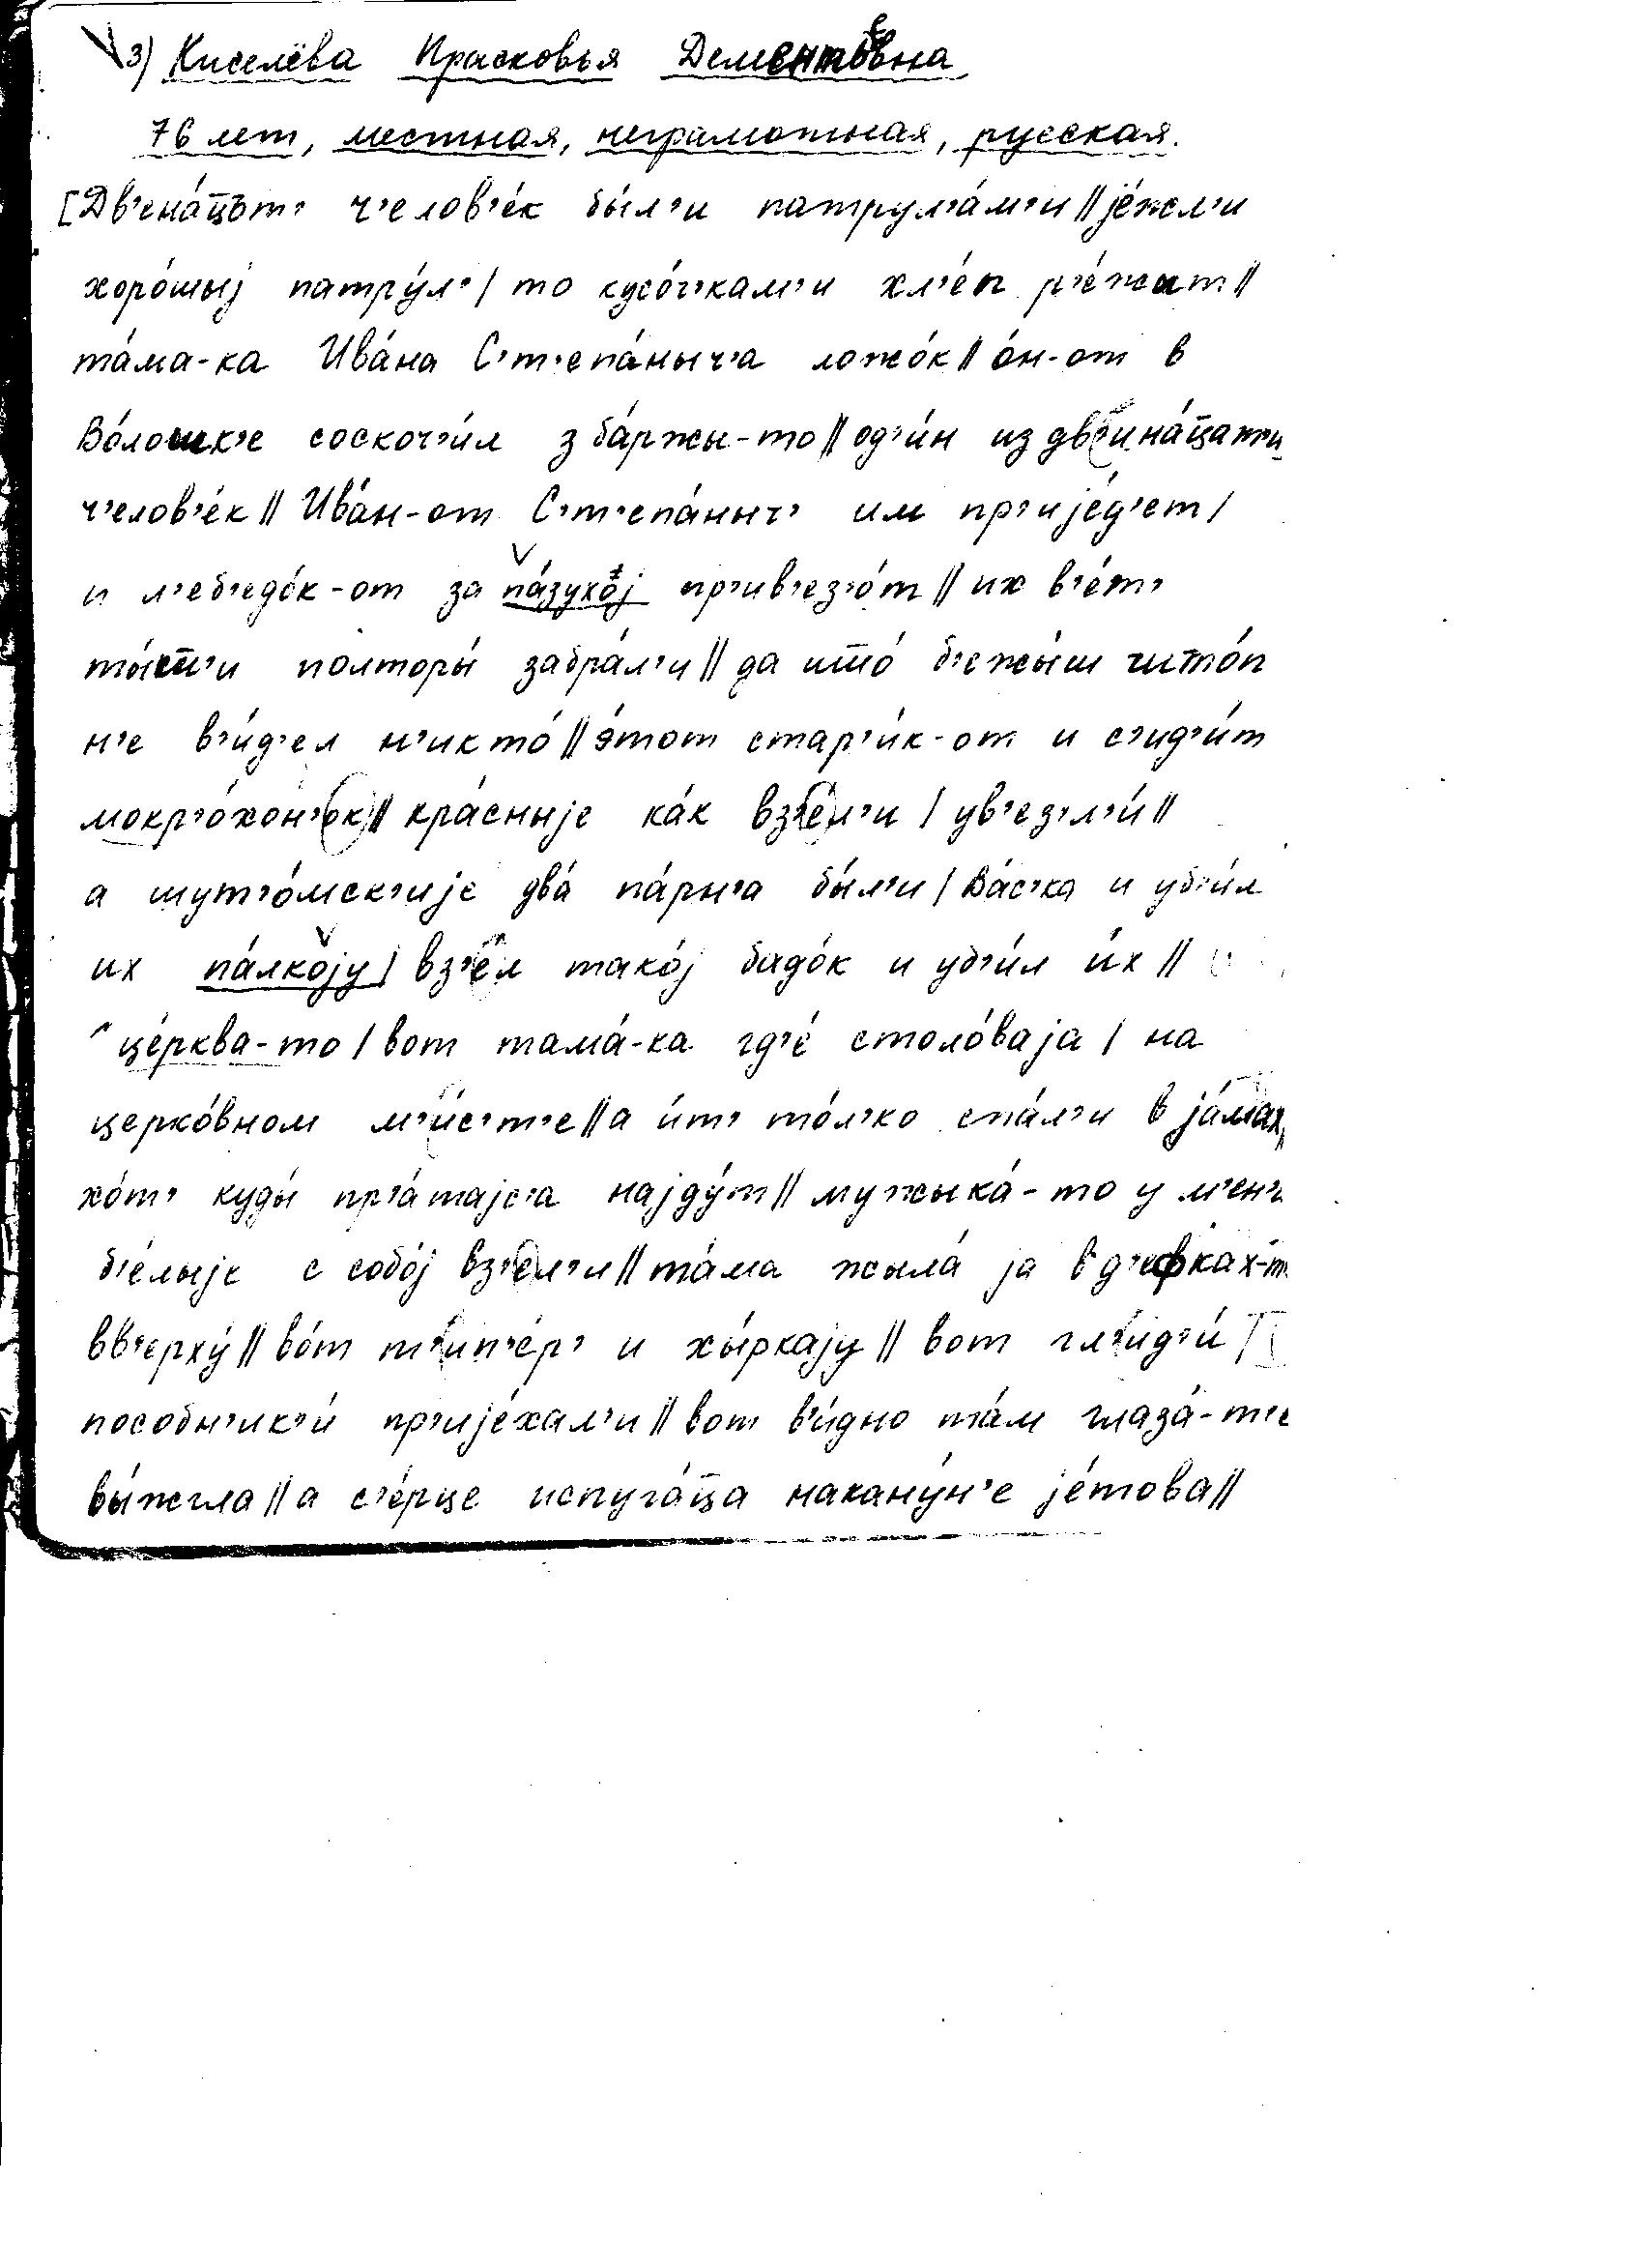 3) Киселёва Прасковья Дементьевна
76 лет, местная, неграмотная, русская.
[Дв'ена́ц̅ът' ч'елов'е́к бы́л'и патрул'а́м'и // је́жл'и
хоро́шыј патру́л' / то кусо́ч'кам'и хл'е́п р'е́жыт //
та́ма-ка Ива́на С'т'епа́ныч'а ложо́к // о́н-от в
Во́лошк'е соскоч'и́л з ба́ржы-то // од'и́н из дв'ина́ц̅ат'и
ч'елов'е́к // Ива́н-от С'т'епа́ныч' им пр'ије́д'ет /
и л'еб'едо́к-от за па́зухој пр'ив'ез'о́т // их в'е́т'
ты́ст'и полторы́ забра́л'и // да што́ б'ежы́ш чшто́п
н'е в'и́д'ел н'икто́ // э́тот стар'и́к-от и с'ид'и́т
мокр'о́хон'ок // кра́сныје ка́к вз'е́л'и / ув'ез'л'и́ //
а шут'о́мск'ије два́ па́рн'а бы́л'и / Ва́с'ка и уб'и́л
их па́лкоју / вз'е́л тако́ј бадо́к и уб'и́л и́х //
це́рква-то / вот тама́-ка гд'е́ столо́ваја / на
церко́вном м'и́с'т'е // а и́т' то́л'ко спа́л'и в ја́мах //
хо́т' куды́ пр'а́тајс'а најду́т // мужыка́-то у м'ен'
б'е́лыје с собо́ј вз'е́л'и // та́ма жыла́ ја в д'е́фках-т
вв'ерху́ // во́т т'ип'е́р' и хы́ркају // вот гл'ид'и́ /
пособн'ик'и́ пр'ије́хал'и // вот в'и́дно та́м глаза́-т'е
вы́жгла // а с'е́рце испуга́ц̅а накану́н'е је́това //